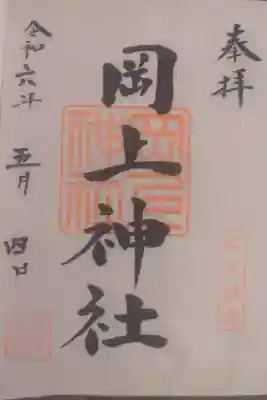 奉拝
岡上神社
令和六年 五月 四日